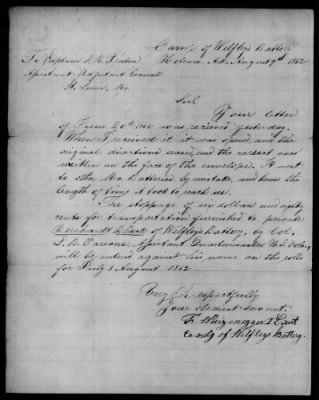 Camp of Welfley's Battery
To Captain Helena, Ark. August 9th 1862
Assistant Adjutant General
St. Louis, Mo.
Sir
Your letter
of June 20th was received yesterday.
When I received it, it was open, and the
original directions erased, and the
written on the face of the envelope. It went
to other Mo. Batteries by mistake, and hence the
length of time it took to reach us.
The stoppage of six dollars and eighty
cents for transportation furnished to private
Bernhardt of Welfley's Battery, by Col.
L. B. Parsons, Assistant Quartermaster U.S.
will be entered against his name on the rolls
for July & August 1862.
Very Respectfully
Your obedient servant.
F. Lieut
Comdg of Welfley's Battery.